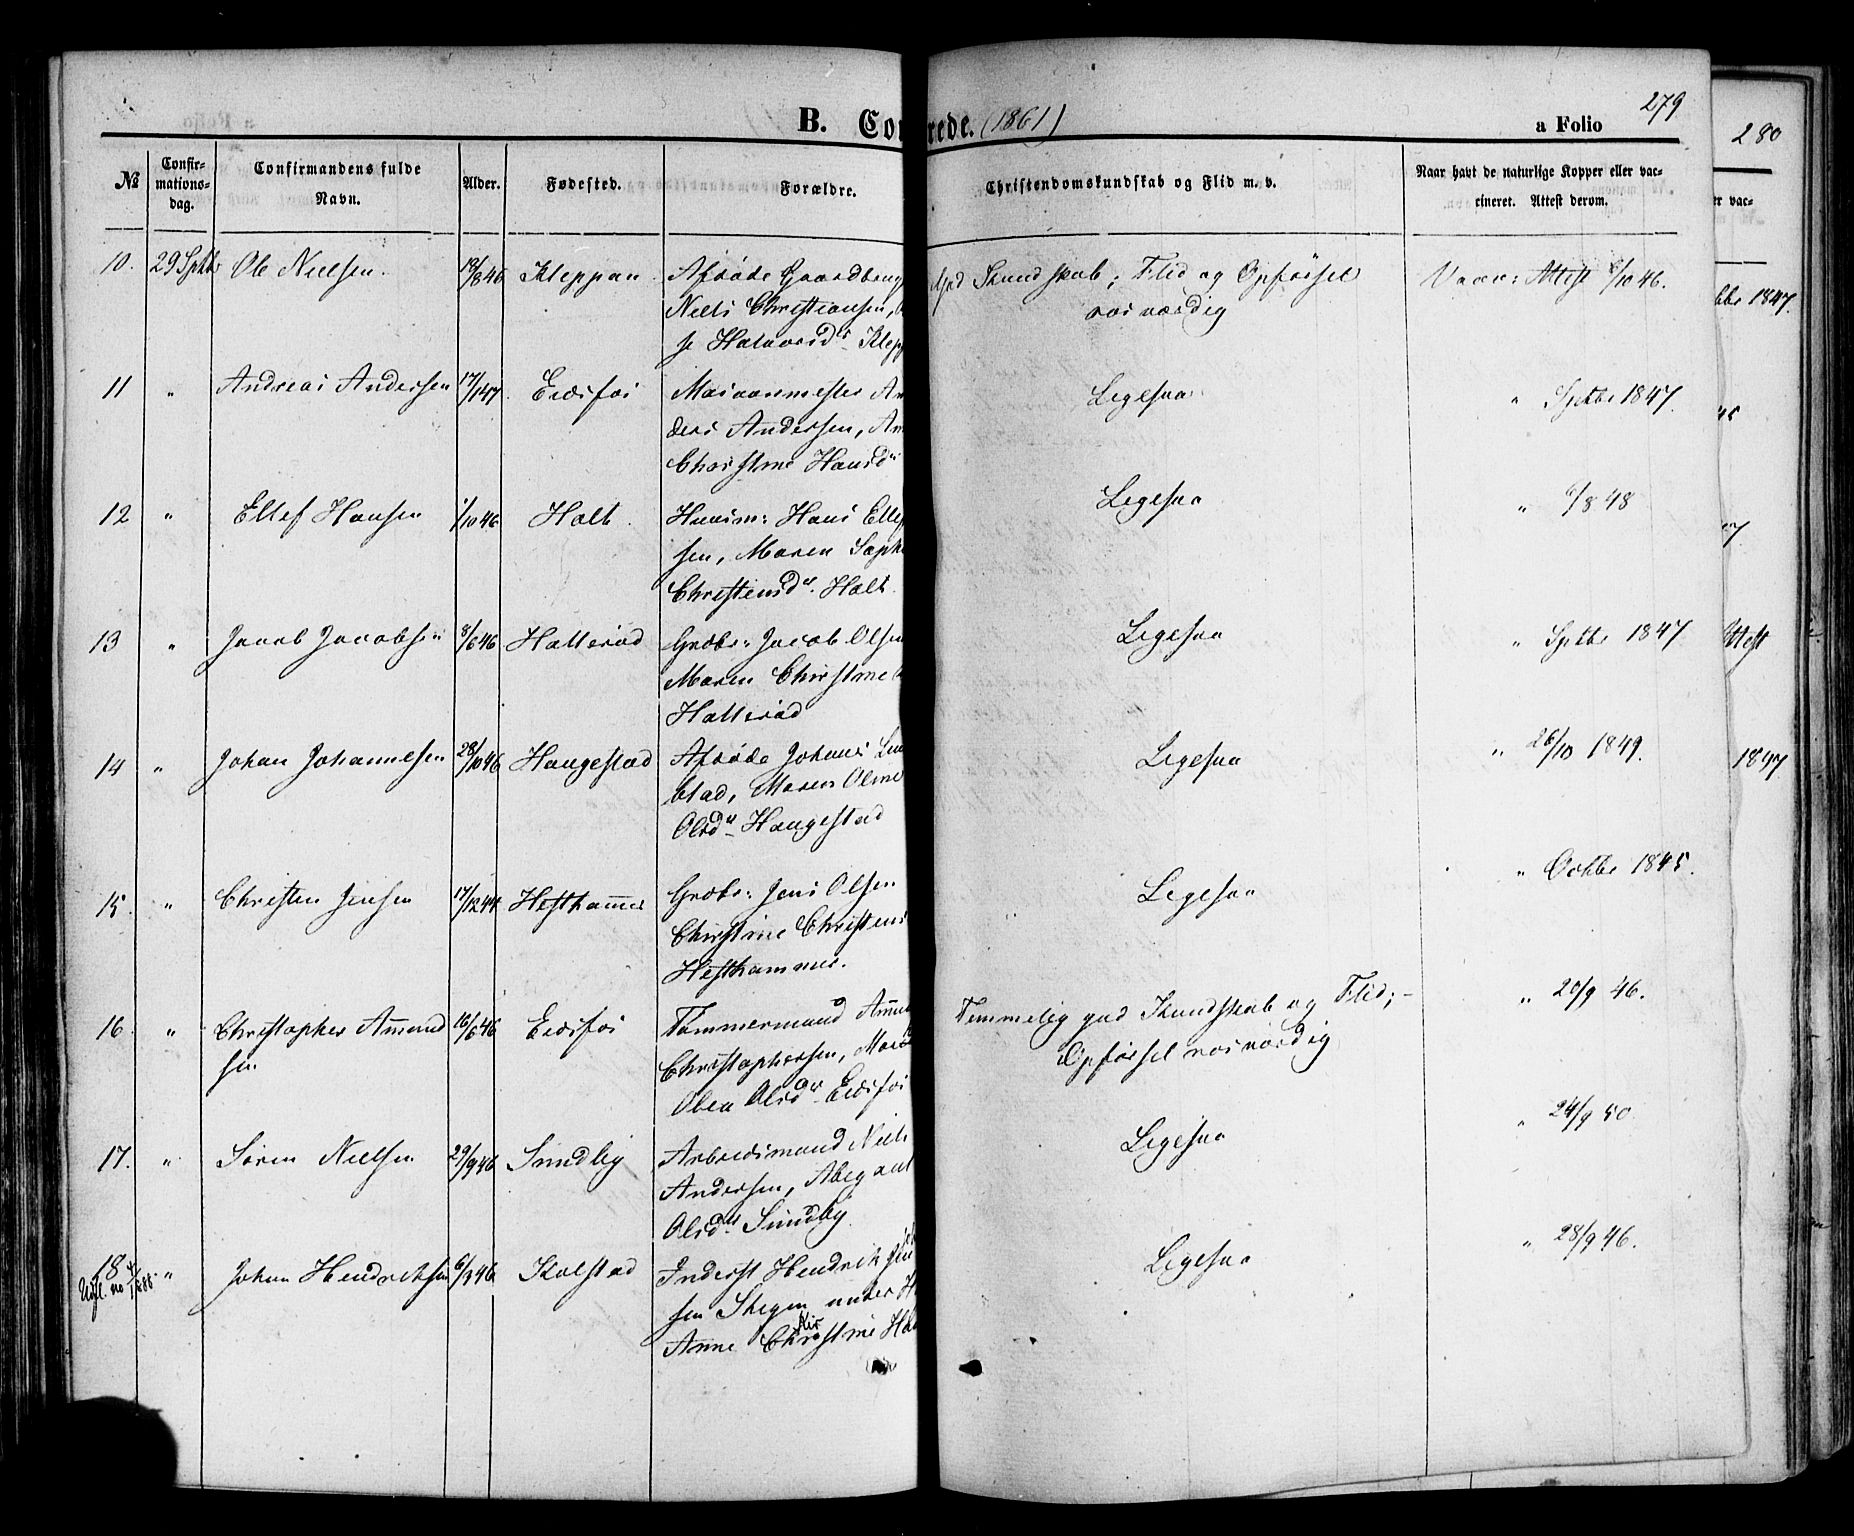 B. Con rede. (1861)
a Folio
279
280
№
Confir-
mations-
dag.
Confirmandens fulde
Navn.
Alder.
Fødested.
Forældre.
Christendomskundskab og Flid m. v.
Naar havt de naturlige Kopper eller vac-
cineret. Attest derom.
er vac-
10. 29 Sptbr Ole Nielsen. 19/8 46 Kleppan Afdøde Gaardbrug
Niels Christiansen,
se Halvorsdr Klepp
god Kundskab; Flid og Opførsel
rosværdig
Vacc: Attest 6/10 46.
11 " Andreas Andersen 17/1 47. Eidsfos Masovnmester An
ders Andersen, An
Christine Hansdr
Ligesaa
" Sptbr 1847.
12 " Ellef Hansen 1/10 46 Holt. Huusm: Hans Ellef
sen, Maren Soph
Christensdr. Holt.
Ligesaa
" 6/8 48
13 " Jacob Jacobsen 8/6 46 Hallerød Grbr: Jacob Olsen
Maren Christine
Hallerød
Ligesaa
" Sptbr 1847
14 " Johan Johannesen 28/10 46 Haugestad Afdøde Johans
stad, Maren Oline
Olsdr Haugestad
Ligesaa
" 26/10 1849.
15 " Christen Jensen 17/12 44 Hesthammer Grbr: Jens Olsen
Christine Christens
Hesthammer.
Ligesaa
" Octbr 1845.
16. " Christopher Amund
sen
16/6 46 Eidsfos Tømmermand Amun
Christophersen, Mar
Olea Olsdr Eidsfos
Temmelig god Kundskab og Flid; -
Opførsel rosværdig
" 20/9 46.
17. " Søren Nielsen 29/9 46 Sundby Arbeidsmand Niels
Andersen, Abegael
Olsdr Sundby
Ligesaa
" 24/9 50.
18 " Johan Hendriksen 6/3 46 Kolstad Inderst Hendrik Jen
sen Skegen under H
Anne Christine
Ligesaa
" 28/9 46.
tbr 1847.
Attest
1847